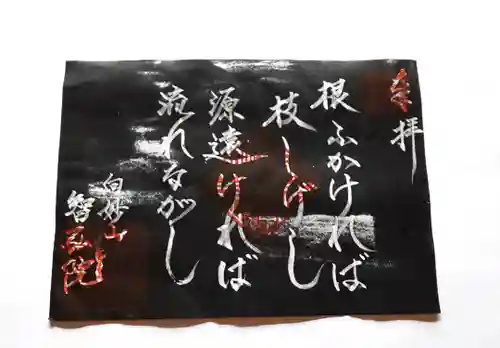 奉拝
根ふかければ
枝しげし
源遠ければ
流れながし
白妙山
智恩院